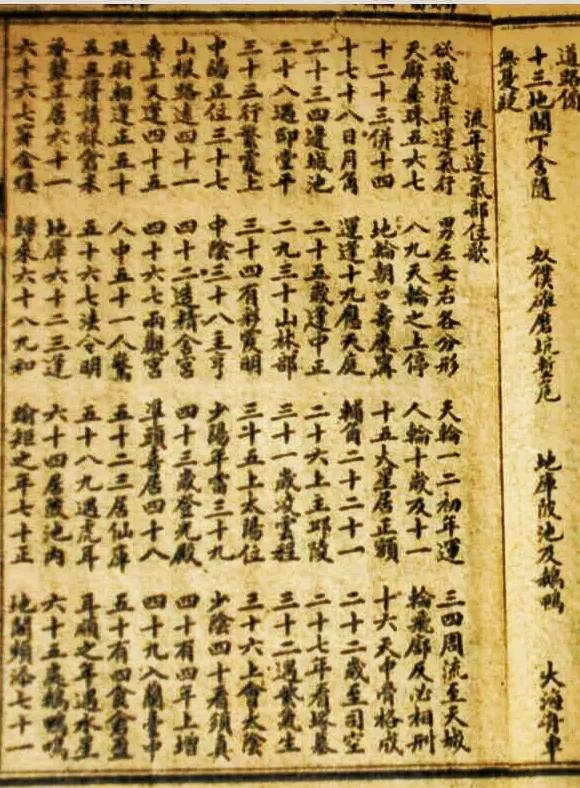 道路傷
十三地閣下舍隨 奴僕碓磨坑塹厄 地庫陂池及鵝鴨 大海舟車
無憂疑
流年運氣部位歌
欲識流年運氣行 男左女右各分形 天輪一二初年運 三四周流至天城
天廓垂珠五六七 八九天輪之上停 人輪十歲及十一 輪飛廓反必相刑
十二十三併十四 地輪朝口壽康寧 十五火星居正額 十六天中骨格成
十七十八日月角 運逢十九應天庭 輔角二十二十一 二十二歲至司空
二十三四邊城池 二十五歲逢中正 二十六上主邱陵 二十七年看塚墓
二十八遇印堂平 二九三十山林部 三十一歲凌雲程 三十二遇紫氣生
三十三行繁霞上 三十四有彩霞明 三十五上太陽位 三十六上會太陰
中陽正位三十七 中陰三十八主亨 少陽年當三十九 少陰四十看須真
山根路遠四十一 四十二造精舍宮 四十三歲登光殿 四十有四年上增
壽上又逢四十五 四十六七兩觀宮 準頭喜居四十八 四十九入蘭臺中
廷尉相逢正五十 人中五十一人驚 五十二三居仙庫 五十有四食倉盈
五五得請祿倉米 五十六七法令明 五十八九遇虎耳 耳順之年遇水星
承漿正居六十一 地庫六十二三逢 六十四居陂池內 六十五處鵝鴨鳴
六十六七穿金縷 歸來六十八九和 踰矩之年七十正 地閣頦洛七十一